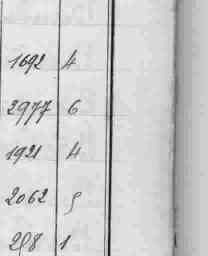 1692 4
2977 6
1921 4
2062 5
298 1